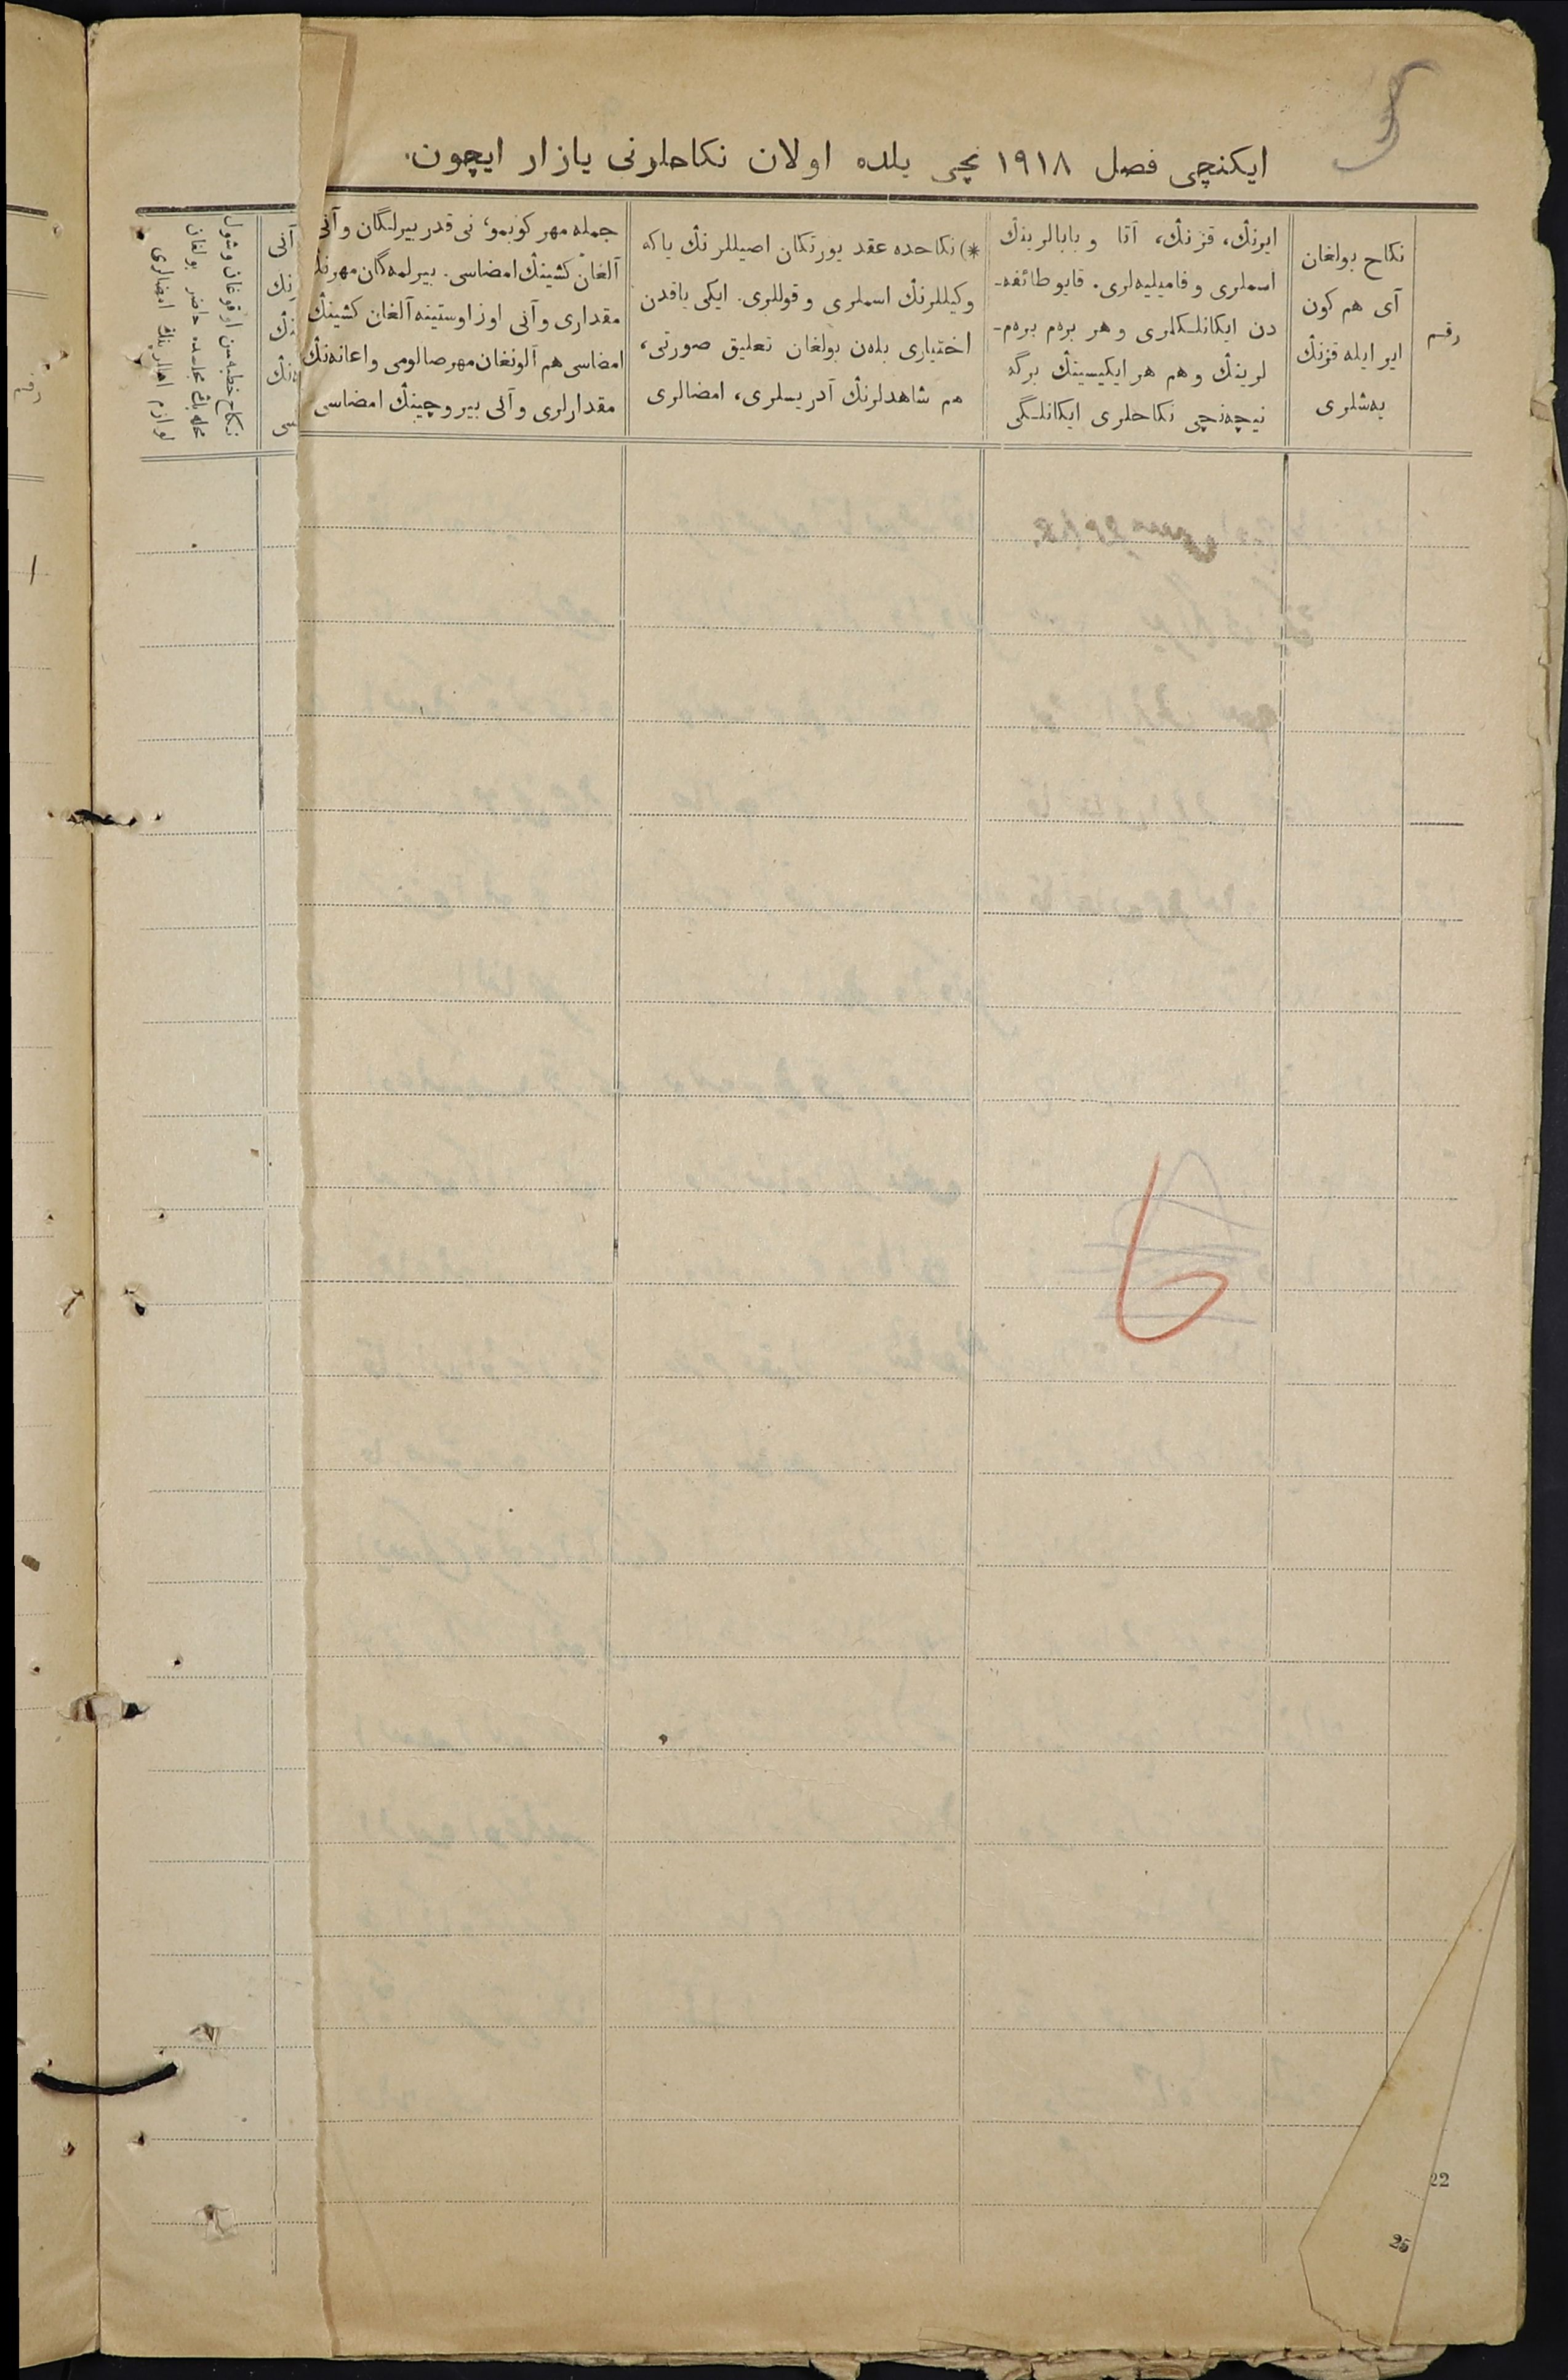 ایکنچی فصل ١٩١٨ نچی یلده اولان نکاحلرنی یازار ایچون.
رقم
نکاح بولغان
آی هم کون
ایر ایله قزنڭ
یەشلری
ایرنڭ، قزنڭ، آتا و بابالرینڭ
اسملری و فامیلیەلری. قایو طائفه-
دن ایکانلکلری و هر برەم برەم-
لرینڭ و هم هر ایکیسینڭ برگه
نیچەنچی نکاحلری ایکانلگی
*) نکاحده عقد یورتکان اصیللرنڭ یاکه
وکیللرنڭ اسملری و قوللری. ایکی یاقدن
اختیاری بلەن بولغان تعلیق صورتی،
هم شاهدلرنڭ آدریسلری، امضالری
جمله مهر کوبمو، نی قدر بیرلگان و آنی
آلغان کشینڭ امضاسی. بیرلمەگان مهرنڭ
مقداری و آنی اوز اوستینه آلغان کشینڭ
امضاسی هم آلونغان مهر صالومی و اعانەنڭ
مقدارلری و آنی بیروچینڭ امضاسی
آنی
رنڭ
نڭ
ەنڭ
سی
نکاح خطبەسن اوقوغان وشول
مجلسده حاضر بولغان
امضالری
رقم
22
25